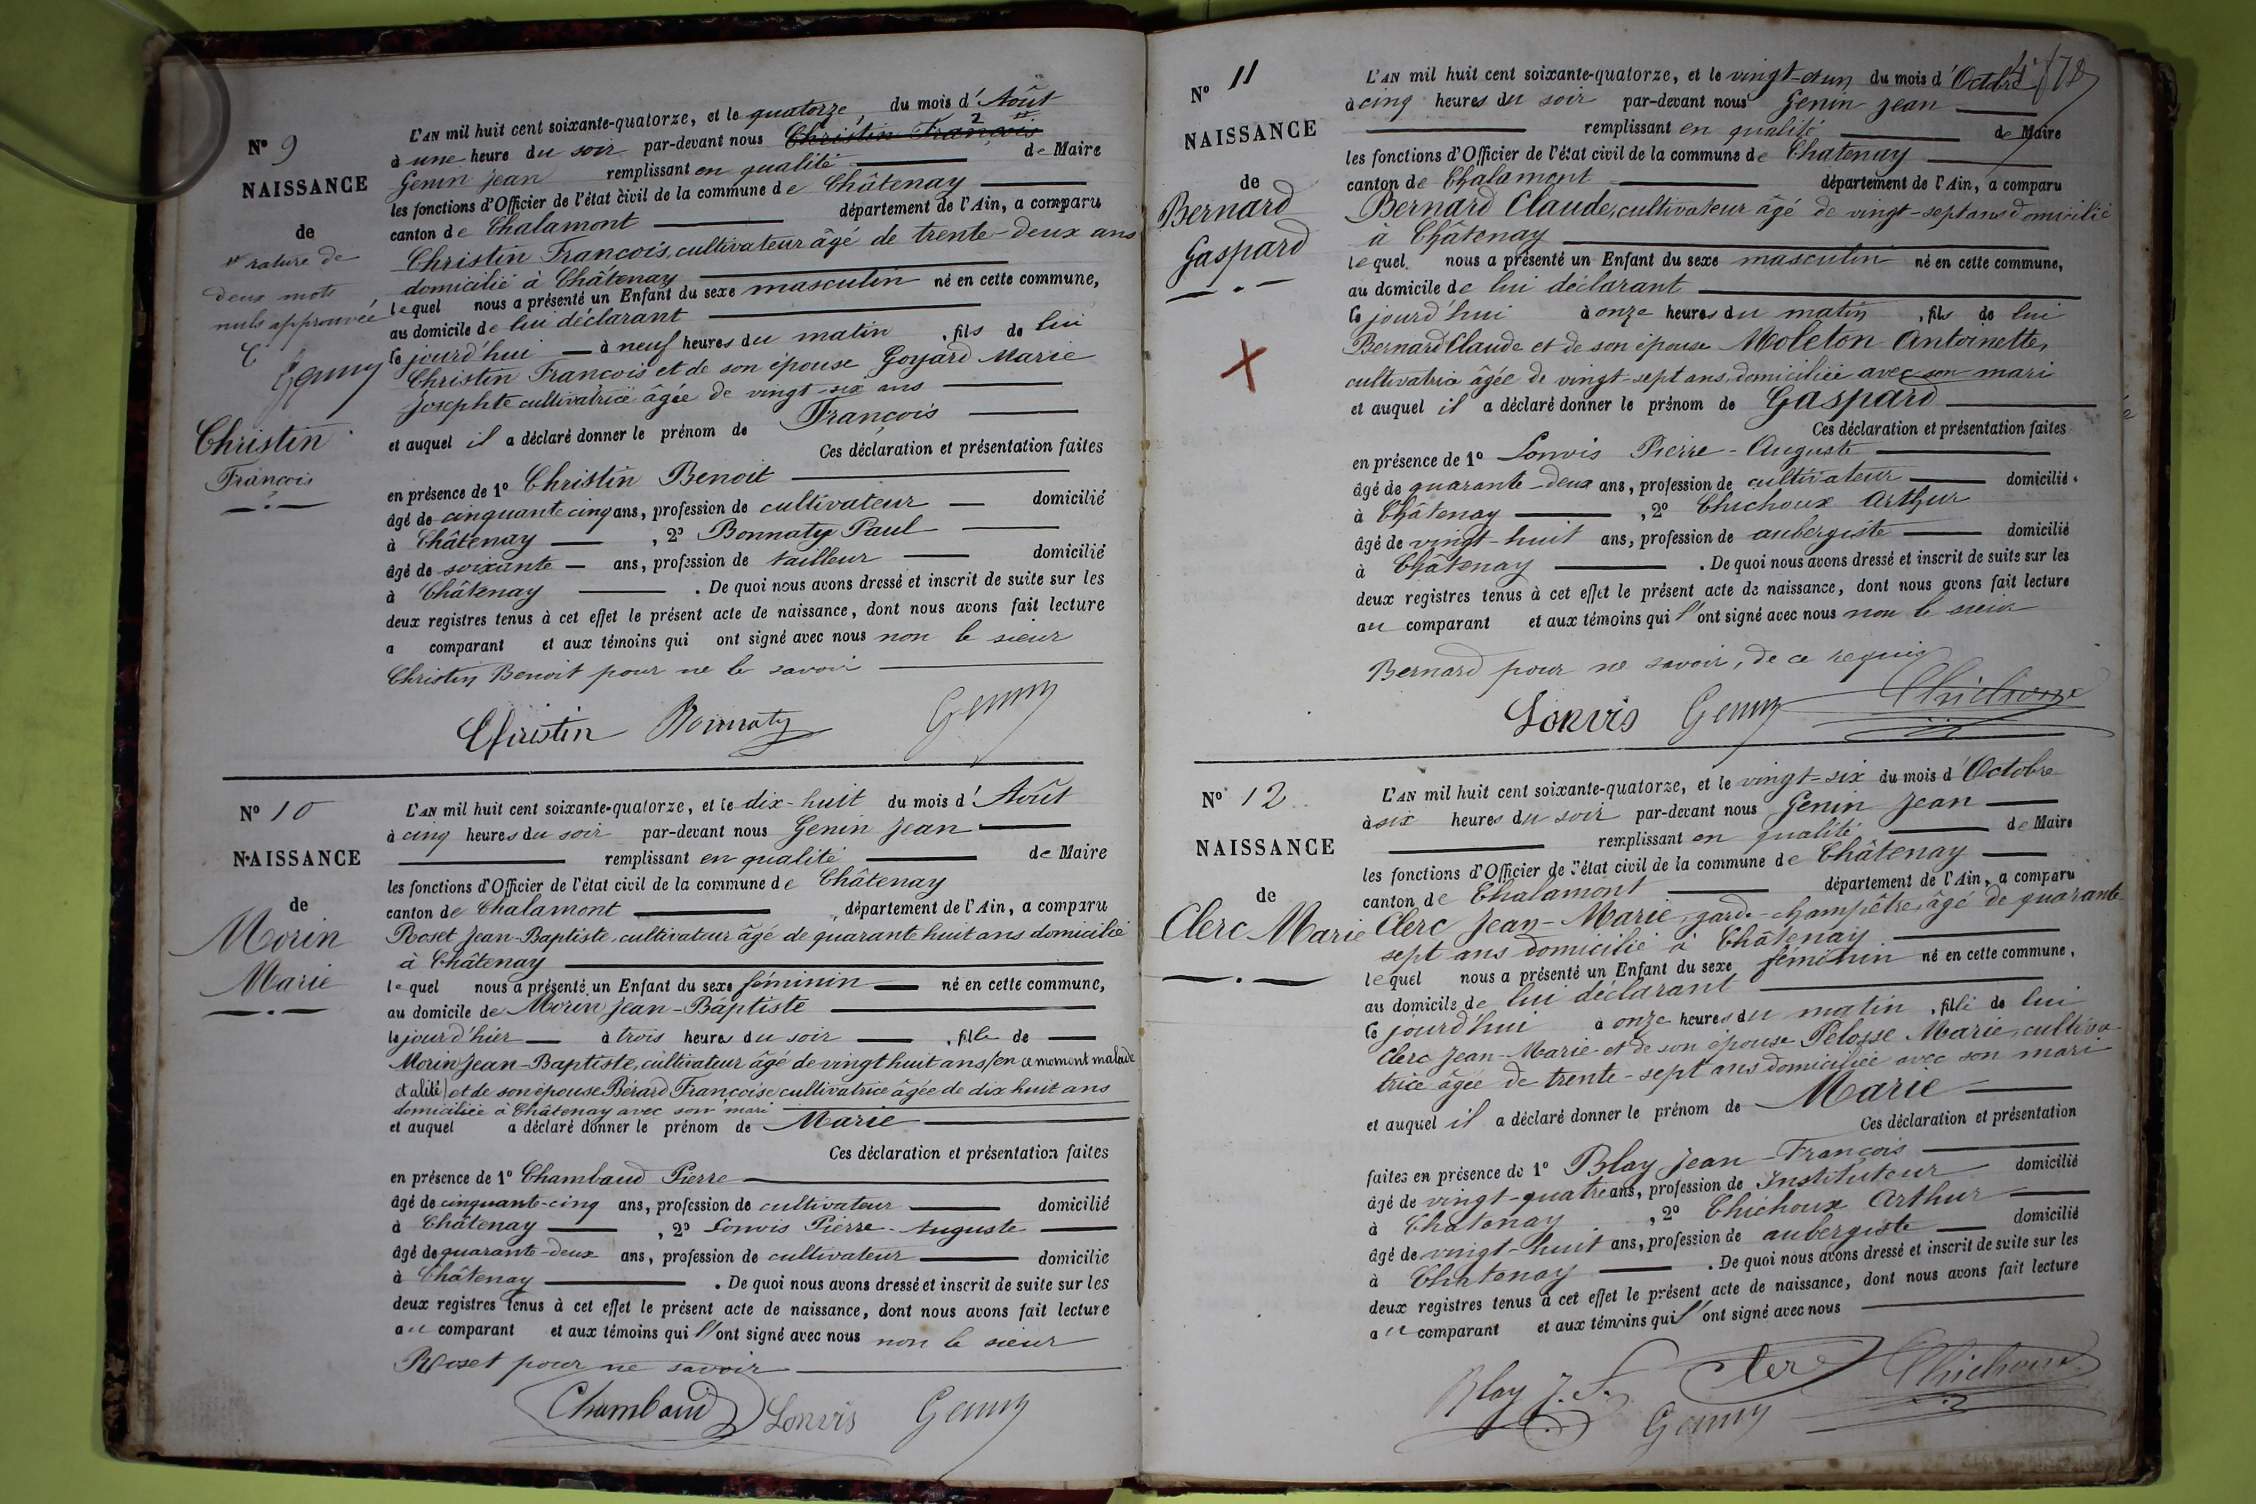 N° 9
NAISSANCE
de
rature de
deux mots
nuls approuvée
Genin
Christin
François
L'AN mil huit cent soixante-quatorze, et le quatorze, du mois d'Août
à une heure du soir par-devant nous Christin François
Genin Jean remplissant en qualité de Maire
les fonctions d'Officier de l'état civil de la commune de Châtenay
canton de Chalamont département de l'Ain, a comparu
Christin François, cultivateur âgé de trente-deux ans
domicilié à Châtenay
lequel nous a présenté un Enfant du sexe masculin né en cette commune,
au domicile de lui déclarant
ce jourd'hui à neuf heures du matin, fils de lui
Christin François et de son épouse Goyard Marie
Josephte cultivatrice âgée de vingt-six ans
et auquel il a déclaré donner le prénom de François
Ces déclaration et présentation faites
en présence de 1° Christin Benoit
âgé de cinquante cinq ans, profession de cultivateur domicilié
à Châtenay, 2° Bonnaty Paul
âgé de soixante ans, profession de tailleur domicilié
à Châtenay. De quoi nous avons dressé et inscrit de suite sur les
deux registres tenus à cet effet le présent acte de naissance, dont nous avons fait lecture
a comparant et aux témoins qui ont signé avec nous non le sieur
Christin Benoit pour ne le savoir
Christin Bonnaty Genin
N° 10
NAISSANCE
de
Morin
Marie
L'AN mil huit cent soixante-quatorze, et le dix-huit du mois d'Août
à cinq heures du soir par-devant nous Genin Jean
remplissant en qualité de Maire
les fonctions d'Officier de l'état civil de la commune de Châtenay
canton de Chalamont département de l'Ain, a comparu
Roset Jean-Baptiste, cultivateur âgé de quarante huit ans domicilié
à Châtenay
lequel nous a présenté un Enfant du sexe féminin né en cette commune,
au domicile de Morin Jean-Baptiste
le jour d'hier à trois heures du soir, fille de
Morin Jean-Baptiste, cultivateur âgé de vingt huit ans (en ce moment malade
et alité) et de son épouse Bérard Françoise cultivatrice âgée de dix huit ans
domiciliée à Châtenay avec son mari
et auquel a déclaré donner le prénom de Marie
Ces déclaration et présentation faites
en présence de 1° Chambaud Pierre
âgé de cinquante-cinq ans, profession de cultivateur domicilié
à Châtenay, 2° Lonvis Pierre-Auguste
âgé de quarante-deux ans, profession de cultivateur domicilié
à Châtenay. De quoi nous avons dressé et inscrit de suite sur les
deux registres tenus à cet effet le présent acte de naissance, dont nous avons fait lecture
au comparant et aux témoins qui l'ont signé avec nous non le sieur
Roset pour ne savoir
Chambaud Lonvis Genin
N° 11
NAISSANCE
de
Bernard
Gaspard
L'AN mil huit cent soixante-quatorze, et le vingt-et-un du mois d'Octobre
à cinq heures du soir par-devant nous Genin Jean
remplissant en qualité de Maire
les fonctions d'Officier de l'état civil de la commune de Chatenay
canton de Chalamont département de l'Ain, a comparu
Bernard Claude, cultivateur âgé de vingt-sept ans domicilié
à Châtenay
lequel nous a présenté un Enfant du sexe masculin né en cette commune,
au domicile de lui déclarant
ce jourd'hui à onze heures du matin, fils de lui
Bernard Claude et de son épouse Moleton Antoinette,
cultivatrice âgée de vingt-sept ans, domiciliée avec son mari
et auquel il a déclaré donner le prénom de Gaspard
Ces déclaration et présentation faites
en présence de 1° Lonvis Pierre-Auguste
âgé de quarante-deux ans, profession de cultivateur domicilié
à Châtenay, 2° Chichoux Arthur
âgé de vingt-huit ans, profession de aubergiste domicilié
à Châtenay. De quoi nous avons dressé et inscrit de suite sur les
deux registres tenus à cet effet le présent acte de naissance, dont nous avons fait lecture
au comparant et aux témoins qui l'ont signé avec nous non le sieur
Bernard pour ne savoir, de ce requis
Lonvis Genin Chichoux
N° 12
NAISSANCE
de
Clerc Marie
L'AN mil huit cent soixante-quatorze, et le vingt-six du mois d'Octobre
à six heures du soir par-devant nous Genin Jean
remplissant en qualité de Maire
les fonctions d'Officier de l'état civil de la commune de Châtenay
canton de Chalamont département de l'Ain, a comparu
Clerc Jean-Marie, garde-champêtre, âgé de quarante
sept ans domicilié à Châtenay
lequel nous a présenté un Enfant du sexe féminin né en cette commune,
au domicile de lui déclarant
ce jourd'hui à onze heures du matin, fille de lui
Clerc Jean-Marie et de son épouse Pelosse Marie, cultiva-
trice âgée de trente-sept ans domiciliée avec son mari
et auquel il a déclaré donner le prénom de Marie
Ces déclaration et présentation
faites en présence de 1° Blay Jean-François
âgé de vingt-quatre ans, profession de Instituteur domicilié
à Chatenay, 2° Chichoux Arthur
âgé de vingt-huit ans, profession de aubergiste domicilié
à Chatenay. De quoi nous avons dressé et inscrit de suite sur les
deux registres tenus à cet effet le présent acte de naissance, dont nous avons fait lecture
au comparant et aux témoins qui l'ont signé avec nous
Blay J. F. Clerc Chichoux
Genin